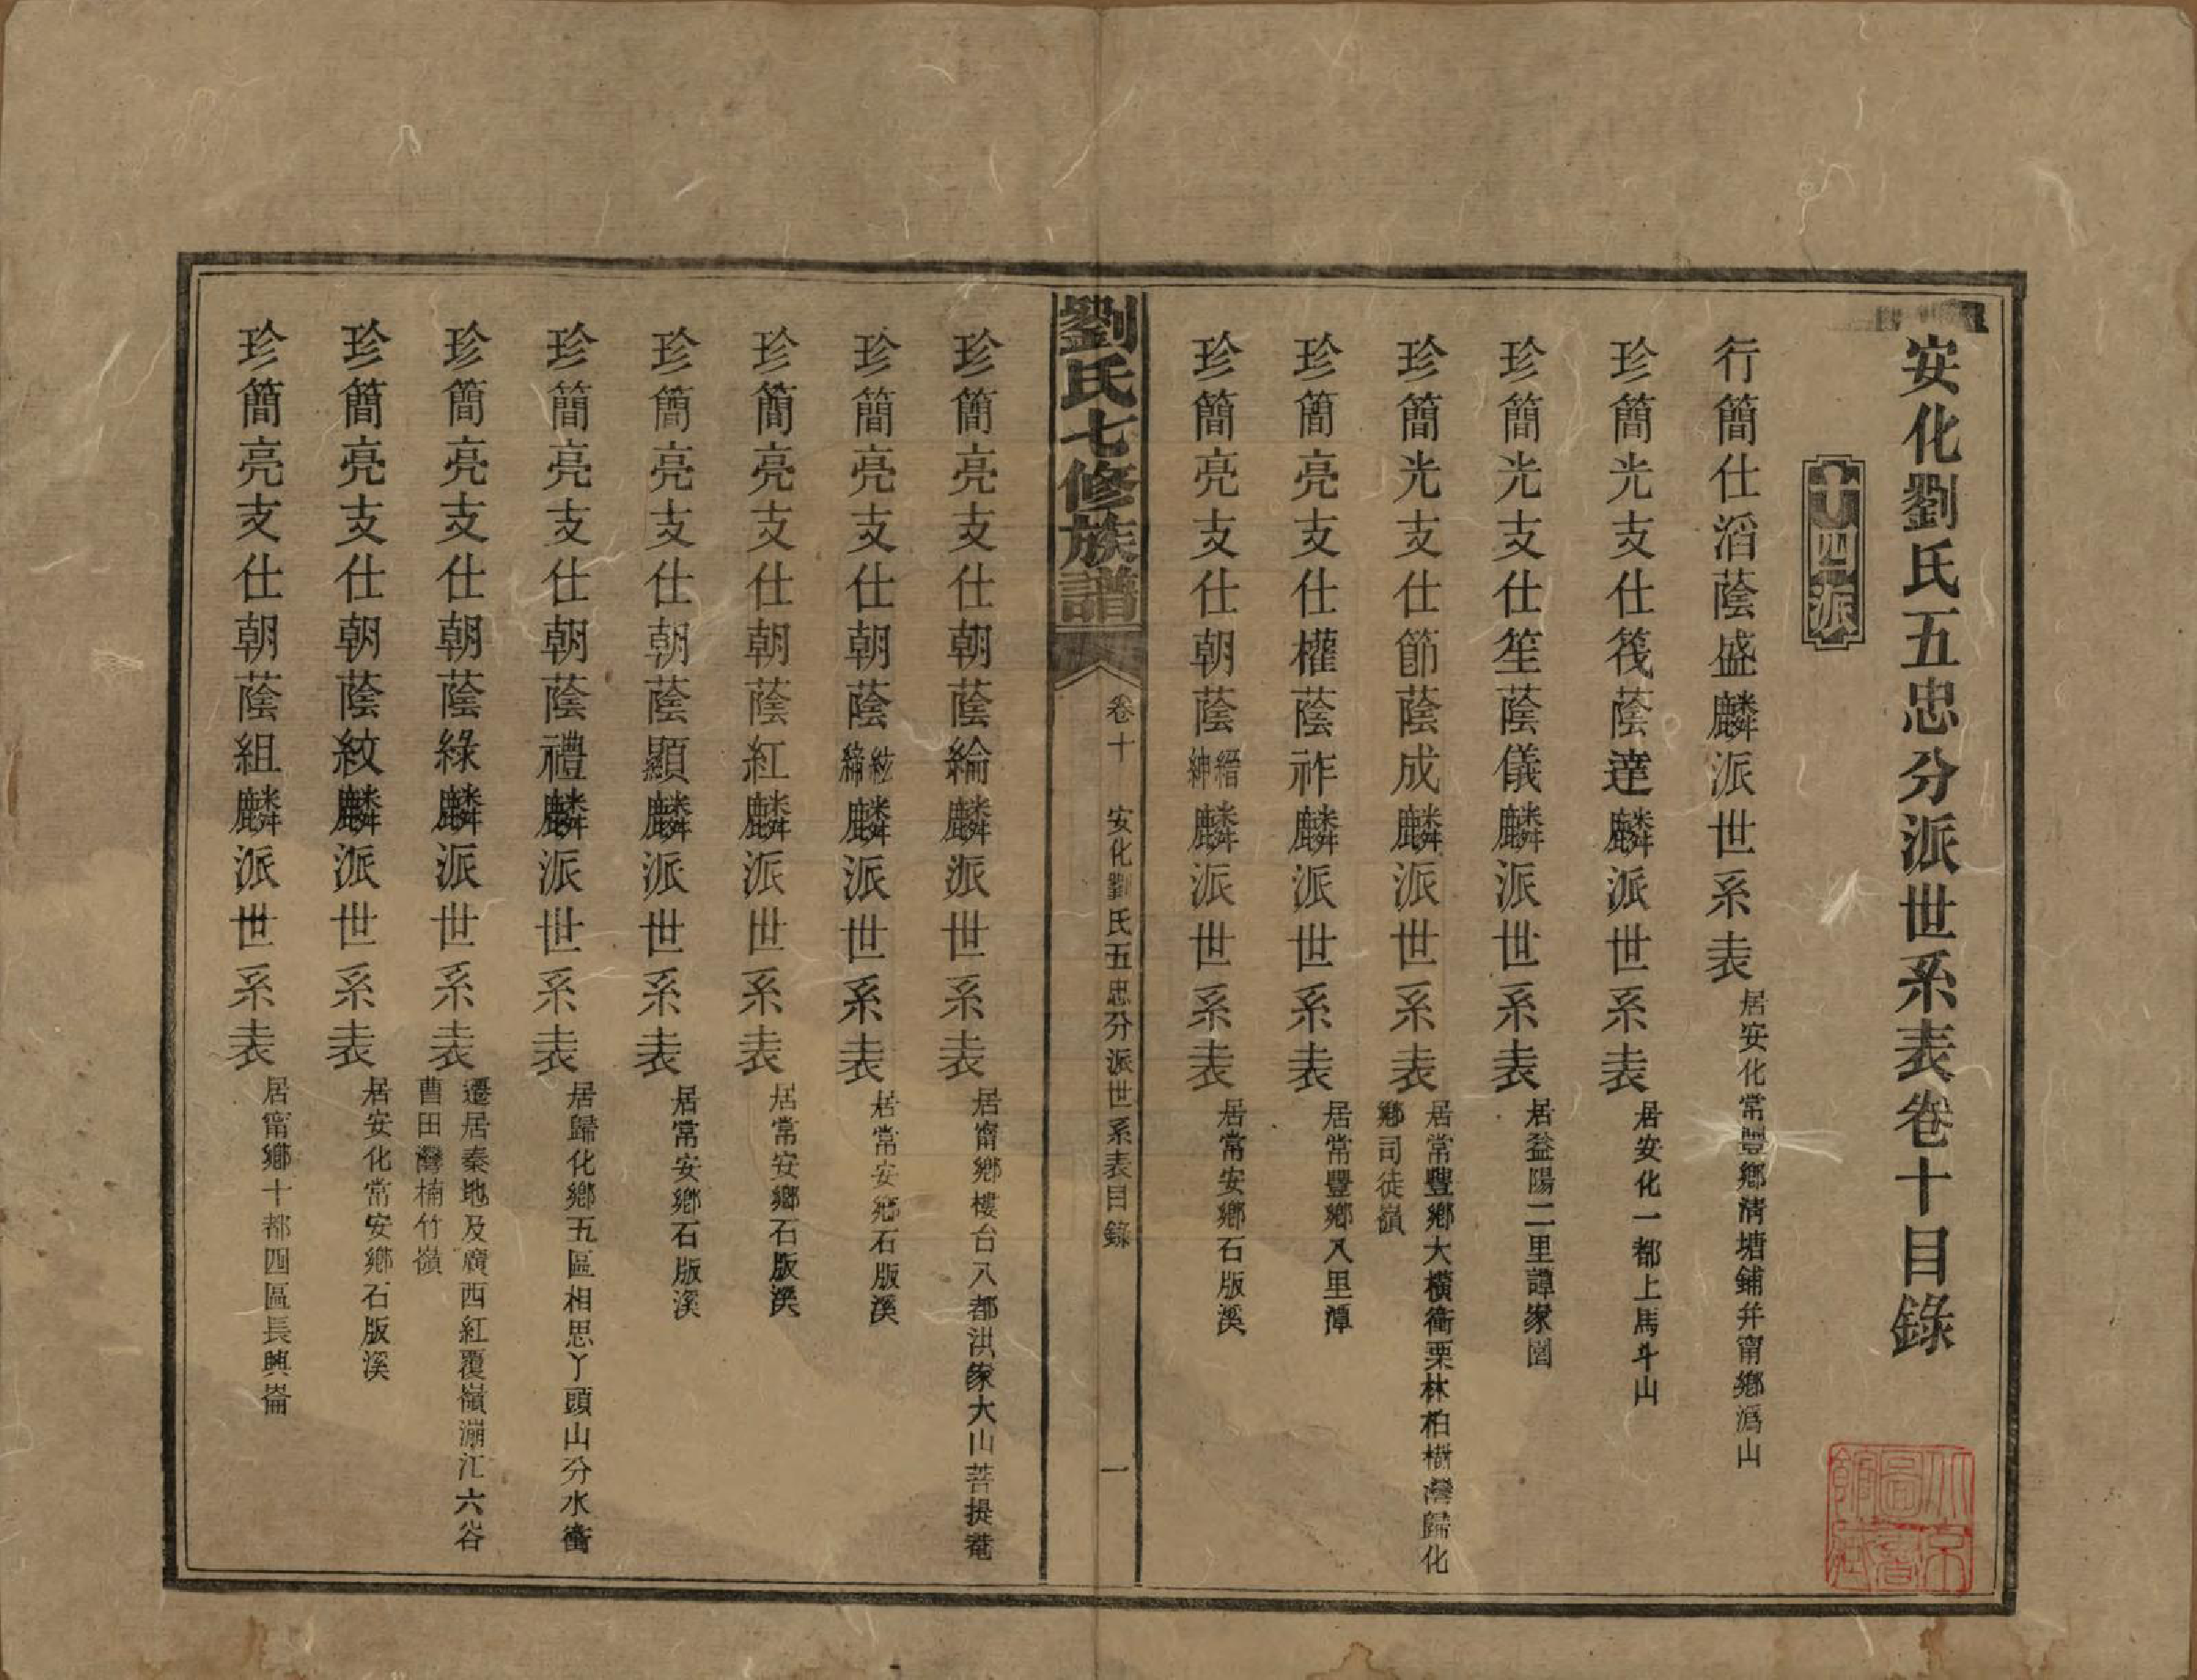 安化劉氏五忠分派世系表卷十目錄
十四派
行簡仕滔蔭盛麟派世系表 居安化常豐鄉清塘鋪幷甯鄉溈山
珍簡光支仕筏蔭達麟派世系表 居安化一都上馬斗山
珍簡光支仕笙蔭儀麟派世系表 居益陽二里譚家園
珍簡光支仕節蔭成麟派世系表 居常豐鄉大橫衝栗林柏樹灣歸化
鄉司徒嶺
珍簡亮支仕權蔭祚麟派世系表 居常豐鄉八里潭
珍簡亮支仕朝蔭縉紳麟派世系表 居常安鄉石版溪
劉氏七修族譜 卷十 安化劉氏五忠分派世系表目錄 一
珍簡亮支仕朝蔭綸麟派世系表 居甯鄉樓台八都洪家大山菩提菴
珍簡亮支仕朝蔭紘締麟派世系表 居常安鄉石版溪
珍簡亮支仕朝蔭紅麟派世系表 居常安鄉石版溪
珍簡亮支仕朝蔭顯麟派世系表 居常安鄉石版溪
珍簡亮支仕朝蔭禮麟派世系表 居歸化鄉五區相思丫頭山分水衝
珍簡亮支仕朝蔭綠麟派世系表 遷居秦地及廣西紅覆嶺漰江六谷
曹田灣楠竹嶺
珍簡亮支仕朝蔭紋麟派世系表 居安化常安鄉石版溪
珍簡亮支仕朝蔭組麟派世系表 居甯鄉十都四區長興崙
北京圖書館藏